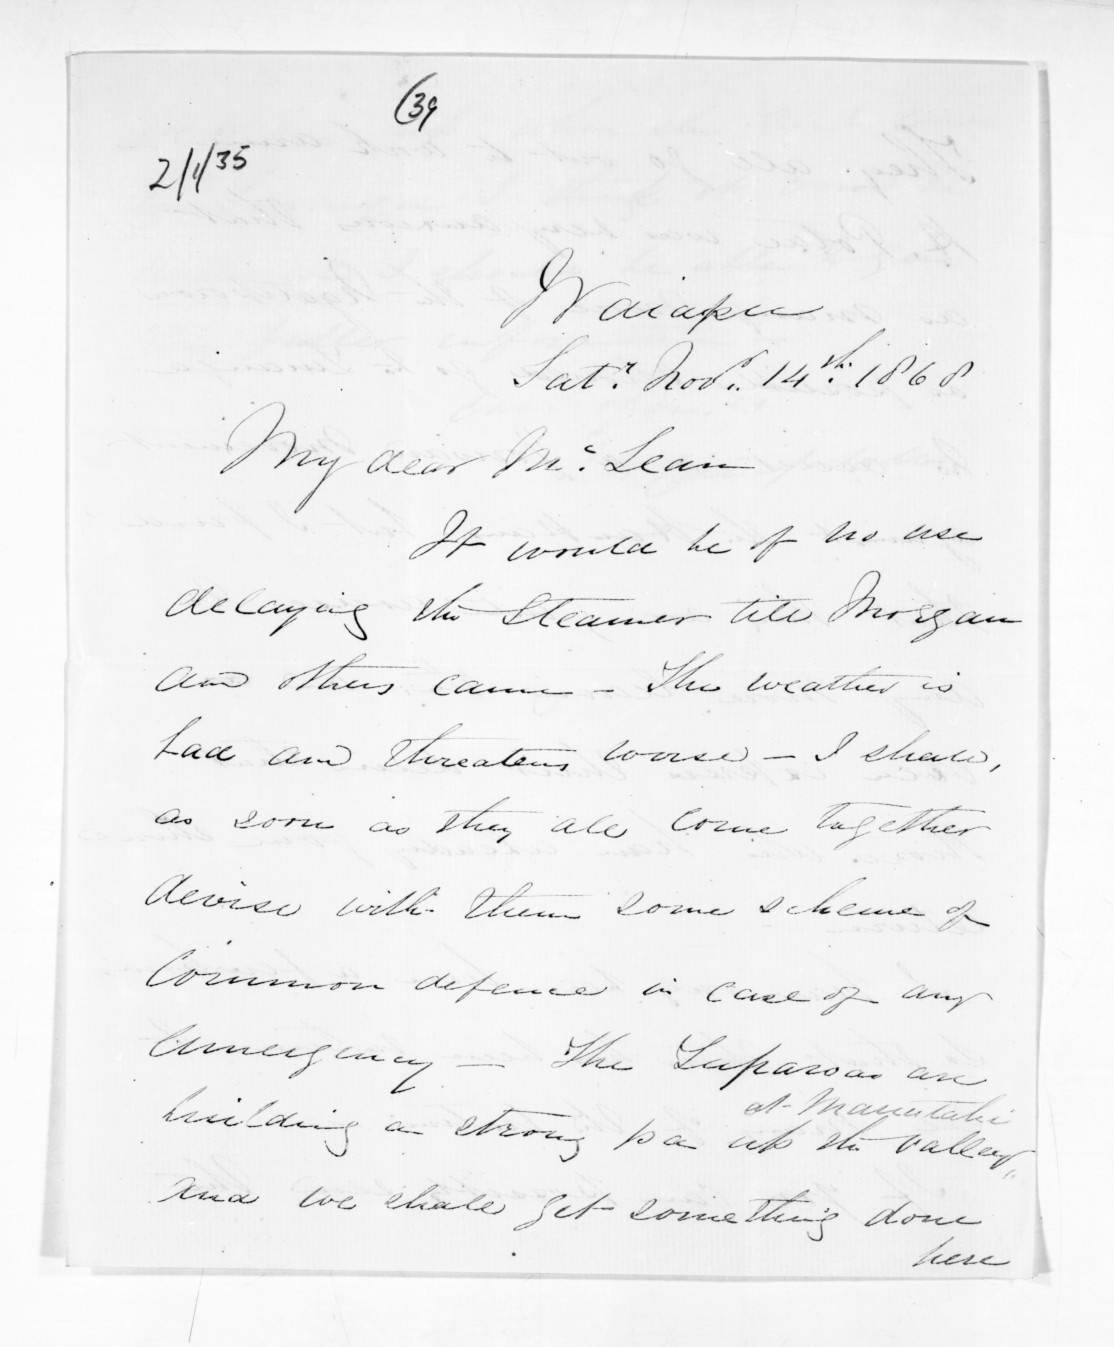 (39
2/1/35
Waiapu
Satr. Novr. 14th. 1868
My dear McLean
It would be of no use
delaying the Steamer till Morgan
and others came - The weather is
bad and threatens worse - I shall,
as soon as they all come together
devise with them some scheme of
common defence in case of any
emergency - The Luparoas are
at Manutahi
building a strong pa up the valley,
and we shall get something done
here